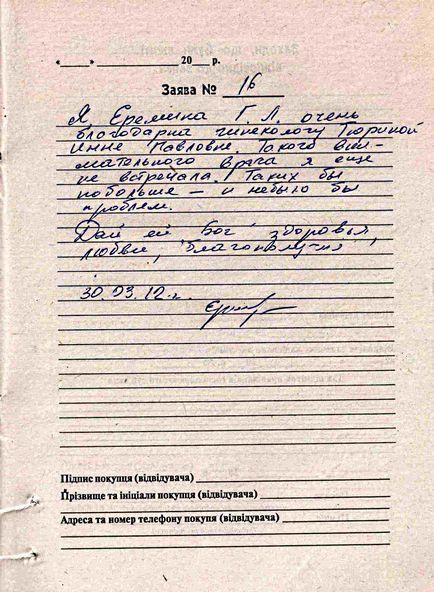 «____» ____________ 20___ р.
Заява № 16
Я Еремина Г. Л. очень
благодарна гинекологу Тюриной
Инне Павловне. Такого вни-
мательного врача я еще
не встречала. Таких бы
побольше – и небыло бы
проблем.
Дай ей Бог здоровья,
любви, благополучия,
30.03.12 г.
Підпис покупця (відвідувача)
Прізвище та ініціали покупця (відвідувача)
Адреса та номер телефону покупя (відвідувача)